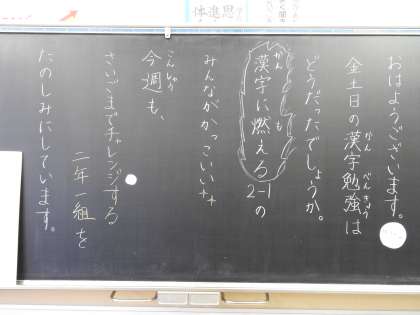 おはようございます。
金土日の漢字勉強は
かん べんきょう
どうだったでしょうか。
漢字に燃える2-1の
かん も
みんながかっこいいね
今週も、
こんしゅう
さいごまでチャレンジする
二年一組を
たのしみにしています。